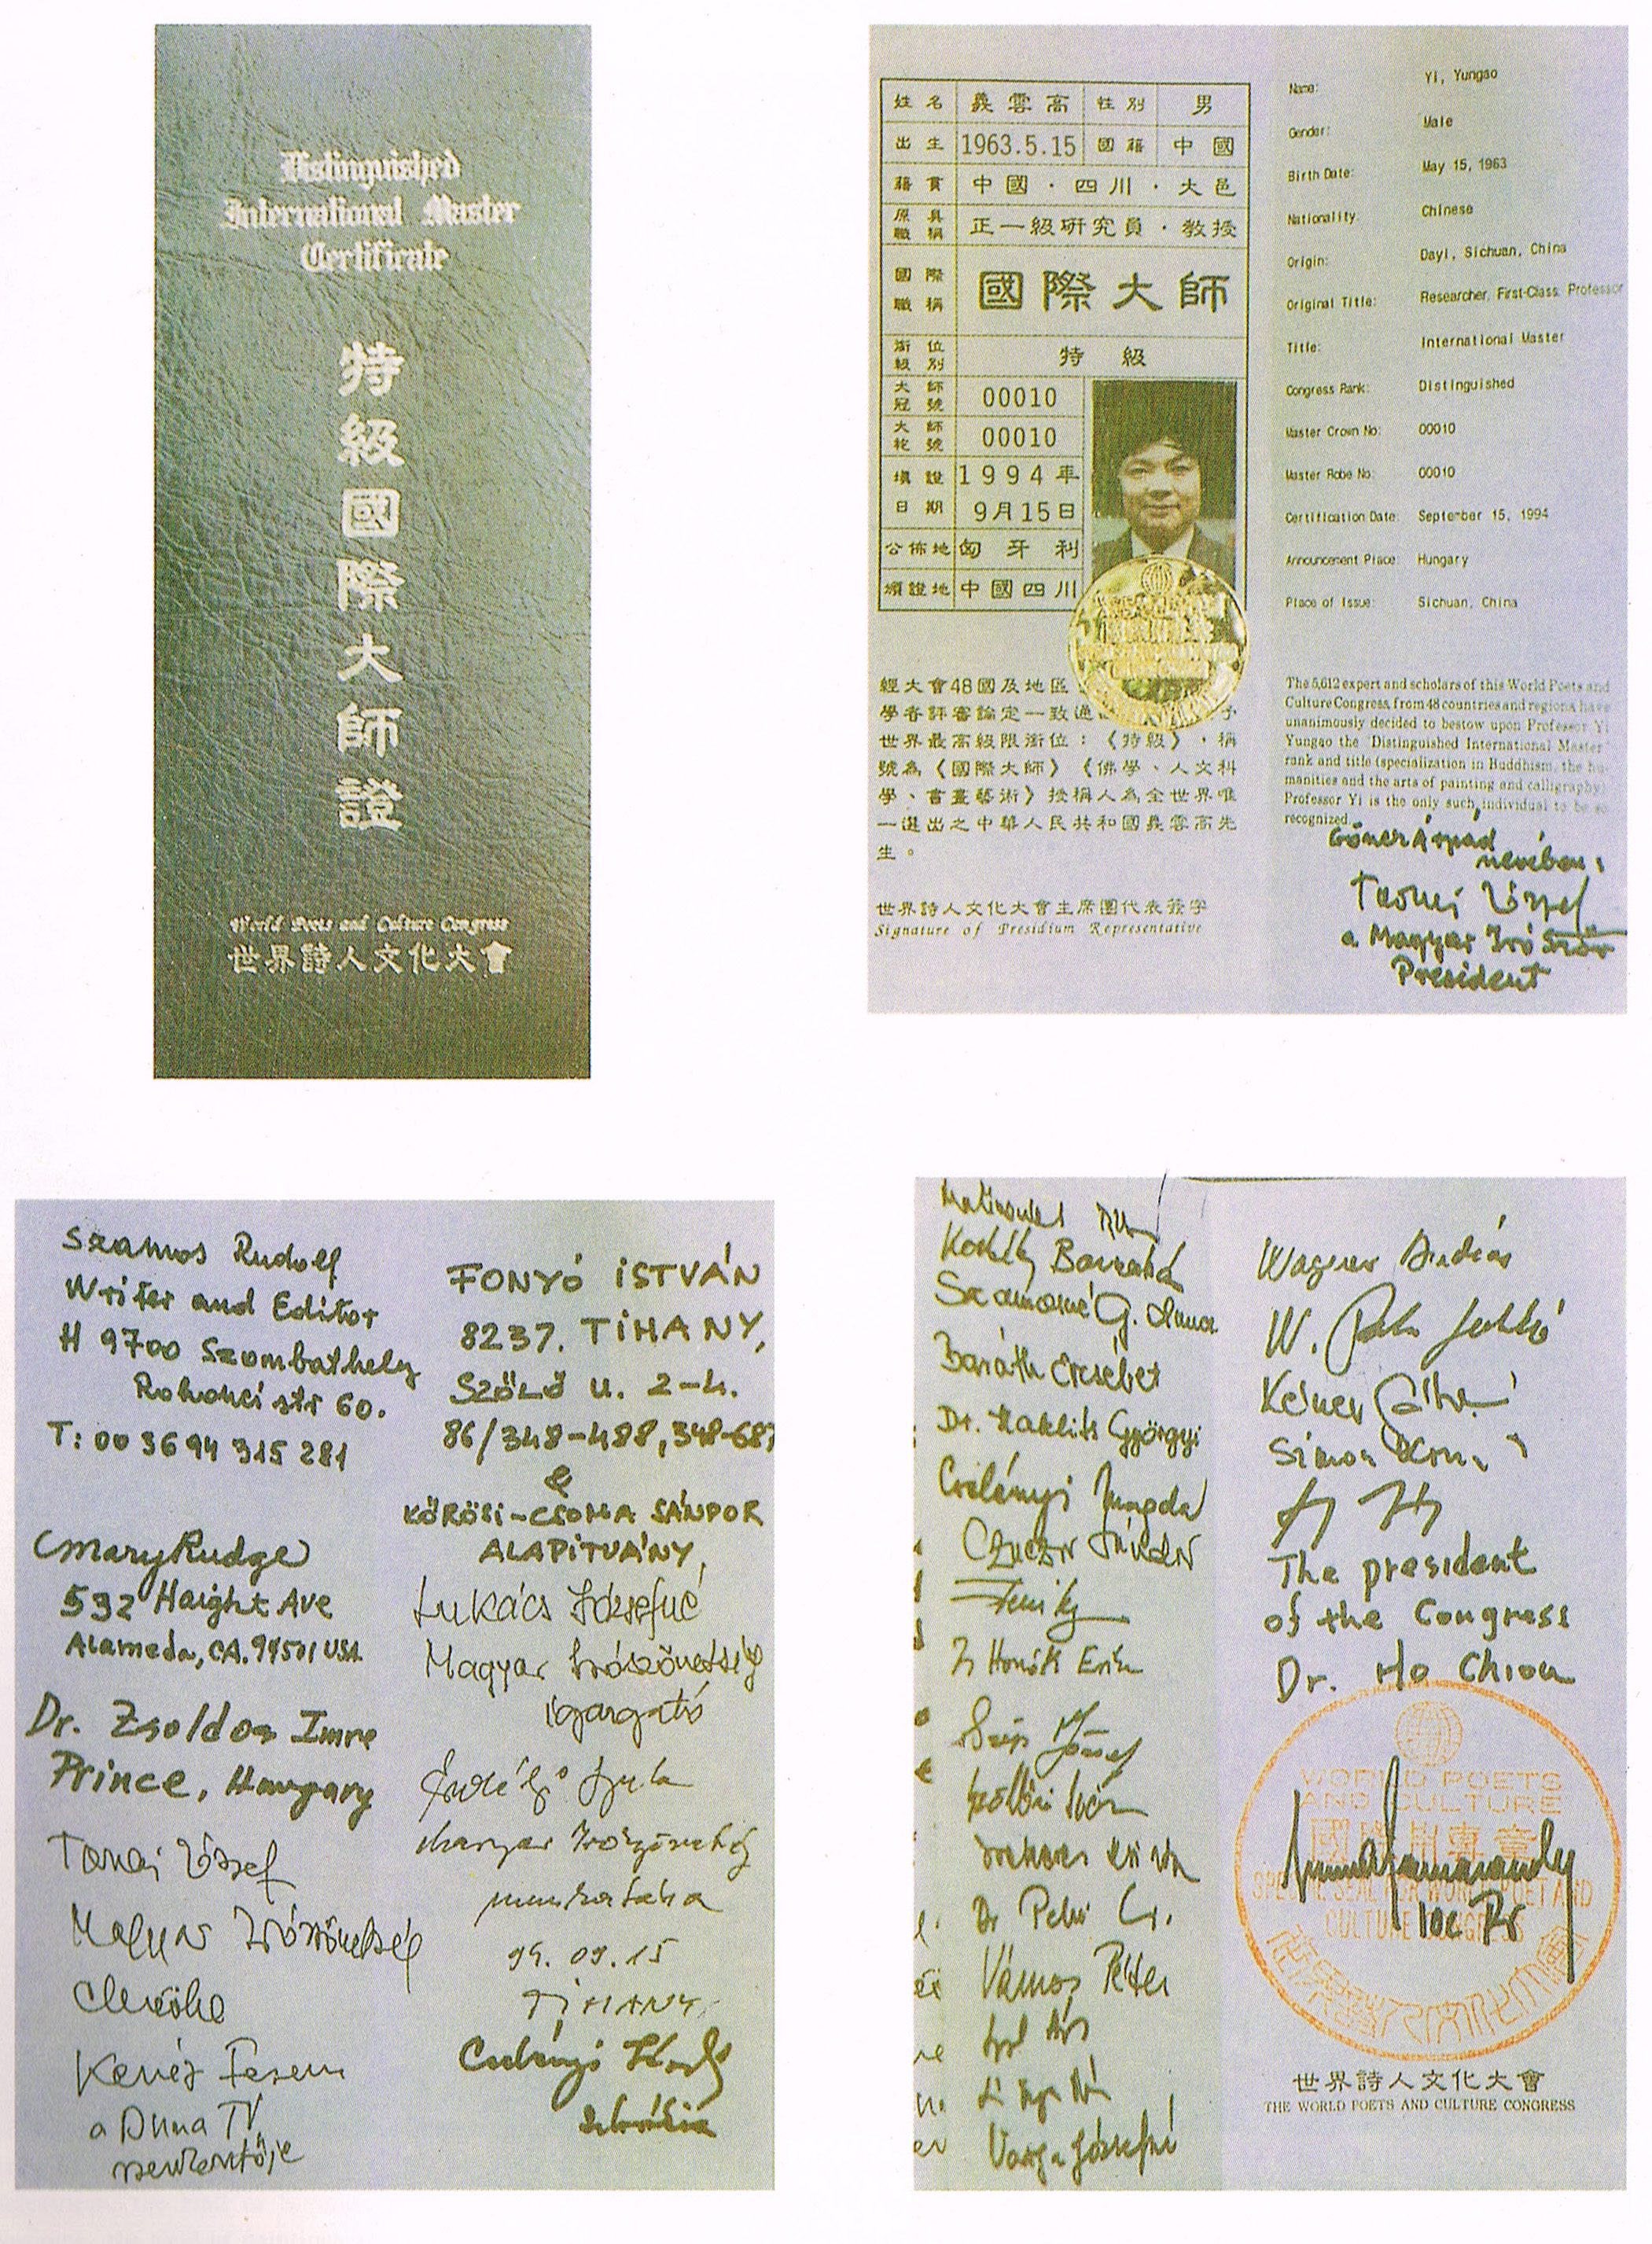 Distinguished
International Master
Certificate
特級國際大師證
World Poets and Culture Congress
世界詩人文化大會
姓名 義雲高 性別 男
出生 1963.5.15 國籍 中國
籍貫 中國·四川·大邑
原具職稱 正一級研究員·教授
國際職稱 國際大師
銜位級別 特級
大師冠號 00010
大師袍號 00010
填證日期 1994年9月15日
公佈地 匈牙利
頒證地 中國四川
經大會48國及地區
學者評審論定一致通
世界最高級限銜位：《特級》，稱
號為《國際大師》《佛學、人文科
學、書畫藝術》授稱人為全世界唯
一選出之中華人民共和國義雲高先
生。
世界詩人文化大會主席團代表簽字
Signature of Presidium Representative
Name: Yi, Yungao
Gender: Male
Birth Date: May 15, 1963
Nationality: Chinese
Origin: Dayi, Sichuan, China
Original Title: Researcher, First-Class Professor
Title: International Master
Congress Rank: Distinguished
Master Crown No: 00010
Master Robe No: 00010
Certification Date: September 15, 1994
Announcement Place: Hungary
Place of Issue: Sichuan, China
The 5,612 expert and scholars of this World Poets and
Culture Congress, from 48 countries and regions have
unanimously decided to bestow upon Professor Yi
Yungao the "Distinguished International Master"
rank and title (specialization in Buddhism, the hu-
manities and the arts of painting and calligraphy)
Professor Yi is the only such individual to be so
recognized.
Göncz Árpád
nevében:
Tornai József
a Magyar Író Szöv
President
Szamos Rudolf
Writer and Editor
H 9700 Szombathely
Rohonci str 60.
T: 00 36 94 315 281
Mary Rudge
532 Haight Ave
Alameda, CA. 94501 USA
Dr. Zsoldos Imre
Prince, Hungary
Tornai József
Magyar Írószövetség
elnöke
Kenéz Ferenc
a Duna TV
szerkesztője
FONYÓ ISTVÁN
8237. TIHANY,
SZŐLŐ U. 2-4.
86/348-488, 348-68
&
KŐRÖSI-CSOMA SÁNDOR
ALAPÍTVÁNY,
Lukács Józsefné
Magyar Írószövetség
igazgató
Erdélyi
Magyar Írószövetség
munkatársa
94. 09. 15
TIHANY
Baráth Erzsébet
Dr. Maklits Györgyi
Magda
Czuczor Sándor
Szép József
Vámos Péter
Varga Józsefné
Wagner András
Simon
The president
of the Congress
Dr. Ho Chiou
WORLD POETS
AND CULTURE
SPECIAL SEAL FOR WORLD POET AND
CULTURE CONGRESS
世界詩人文化大會
THE WORLD POETS AND CULTURE CONGRESS